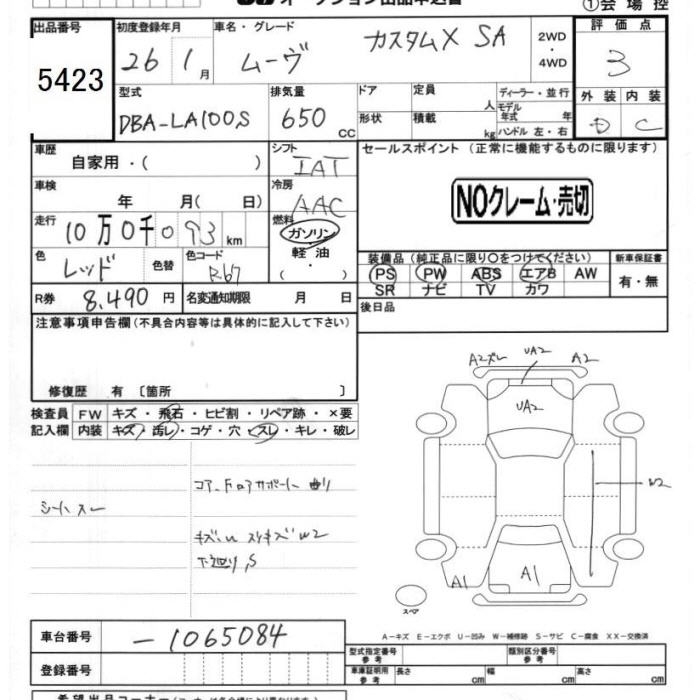 オークション出品申込書
①会場控
出品番号
5423
初度登録年月
26 1月
車名・グレード
ムーヴ カスタムX SA
2WD
・
4WD
評価点
3
型式
DBA-LA100S
排気量
650 cc
ドア
定員
人
ディーラー・並行
モデル年式
年
形状
積載
kg
ハンドル 左・右
外装 内装
D C
車歴
自家用・( )
シフト
IAT
セールスポイント (正常に機能するものに限ります)
車検
年 月( 日)
冷房
AAC
NOクレーム・売切
走行
10万0千093km
燃料
ガソリン
軽油
・
( )
色
レッド
色替
色コード
R67
装備品(純正品に限り○をつけてください)
PS PW ABS エアB AW
SR ナビ TV カワ
新車保証書
有・無
R券
8,490円
名変通知期限 月 日
後日品
注意事項申告欄(不具合内容等は具体的に記入して下さい)
修復歴 有〔箇所 〕
検査員 FW キズ・飛石・ヒビ割・リペア跡・×要
記入欄 内装 キズ・汚レ・コゲ・穴・スレ・キレ・破レ
コア
サポート 曲リ
シートスレ
W2
下廻りS
A2スレ
UA2
A2
UA2
W2
A1
A1
スペア
A−キズ E−エクボ U−凹み W−補修跡 S−サビ C−腐食 XX−交換済
車台番号
-1065084
登録番号
型式指定番号
参考
類別区分番号
参考
車庫証明用
参考
長さ cm
幅 cm
高さ cm
希望出品コーナー